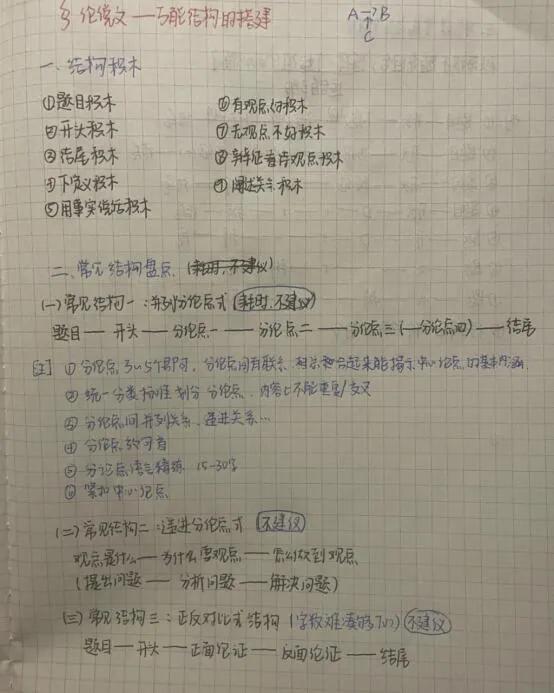 议论文——万能结构的搭建
A→?B
↑
C
一、结构积木
①题目积木 ⑥有观点的积木
②开头积木 ⑦无观点不的积木
③结尾积木 ⑧辩证看待观点积木
④下定义积木 ⑨阐述关系积木
⑤用事实说话积木
二、常见结构盘点.(耗时,不建议)
(一)常见结构一:并列分论点式(耗时,不建议)
题目——开头——分论点一——分论点二——分论点三(—分论点四)——结尾
[注] ①分论点3~5个即可,分论点间有联系,相示和合起来能揭示中心论点的基本内涵
②统一分类标准划分分论点,内容上不能重复/交叉
③分论点间并列关系、递进关系…
④分论点放句首
⑤分论点语言精练 15-30字
⑥紧扣中心论点
(二)常见结构二:递进分论点式(不建议)
观点是什么——为什么要观点——怎么做到观点
(提出问题——分析问题——解决问题)
(三)常见结构三:正反对比式结构(字数难凑够)(不建议)
题目——开头——正面论证——反面论证——结尾